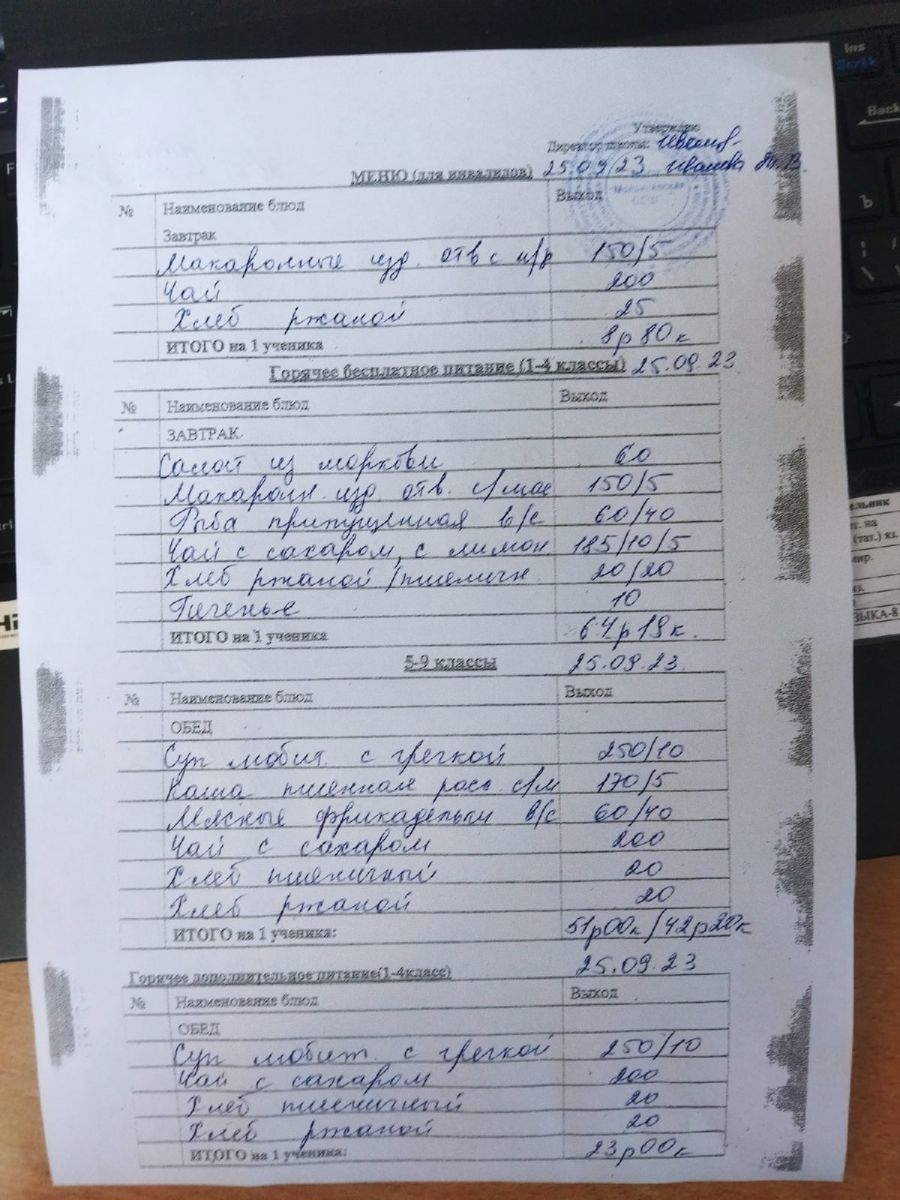 Утверждаю
Директор школы:
МЕНЮ (для инвалидов) 25.09/23 Иванова
№ Наименование блюд Выход
Завтрак
Макаронные изд. отв с м/р 150/5
Чай 200
Хлеб ржаной 25
ИТОГО на 1 ученика 8р 80к
Горячее бесплатное питание (1-4 классы) 25.09.23
№ Наименование блюд Выход
ЗАВТРАК
Салат из моркови 60
Макарон. изд. отв. с/мас 150/5
Рыба припущенная в/с 60/40
Чай с сахаром, с лимон 185/10/5
Хлеб ржаной /пшеничн. 20/20
Печенье 10
ИТОГО на 1 ученика 64р 19к.
5-9 классы 25.09.23.
№ Наименование блюд Выход
ОБЕД
Суп любит. с гречкой 250/10
Каша пшенная расс. с/м 170/5
Мясные фрикадельки в/с 60/40
Чай с сахаром 200
Хлеб пшеничный 20
Хлеб ржаной 20
ИТОГО на 1 ученика: 51р00к/42р20к
Горячее дополнительное питание(1-4класс) 25.09.23
№ Наименование блюд Выход
ОБЕД
Суп любит. с гречкой 250/10
Чай с сахаром 200
Хлеб пшеничный 20
Хлеб ржаной 20
ИТОГО на 1 ученика: 23р00к